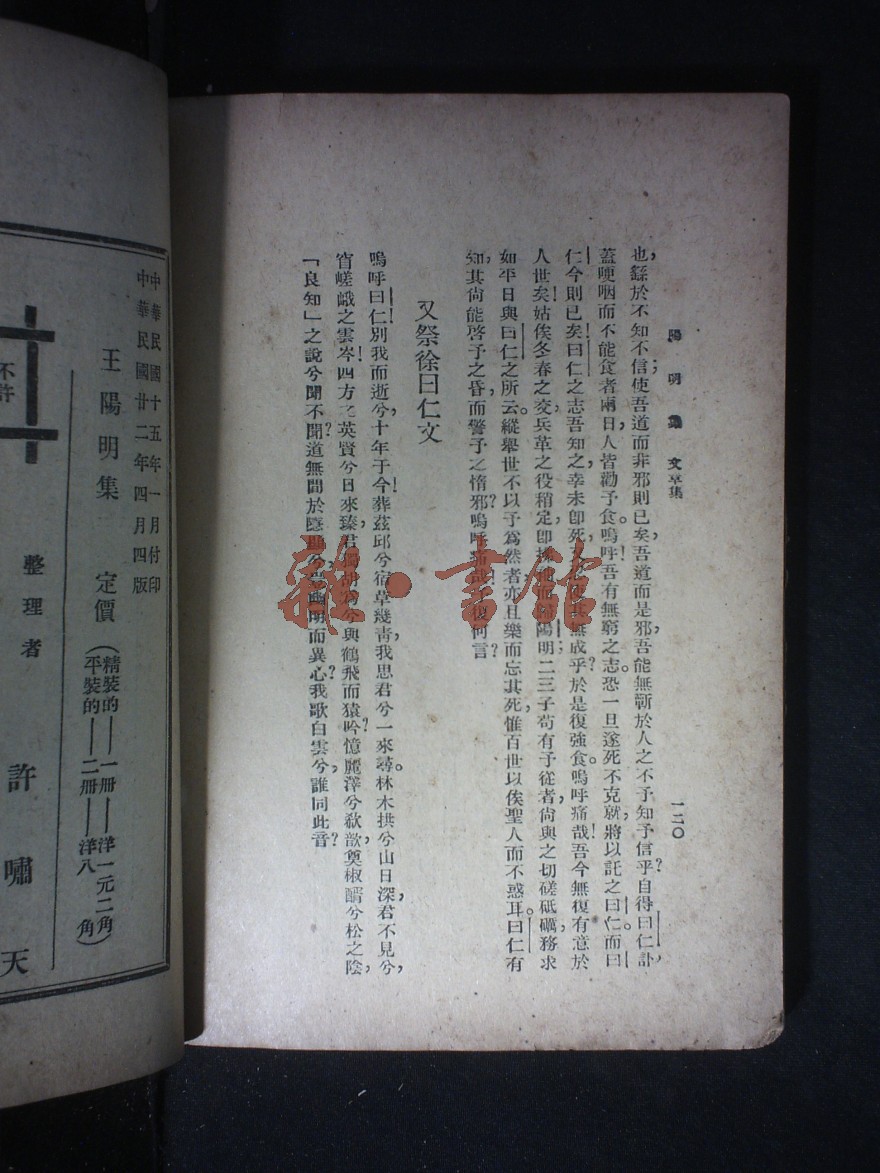 陽明集 文章集
一二〇
也,繇於不知不信使吾道而非邪則已矣吾道而是邪,吾能無蘄於人之不予知予信乎?自得曰仁訃,
蓋哽咽而不能食者兩日,人皆勸予食。嗚呼!吾有無窮之志,恐一旦遂死不克就,將以託之曰仁而曰
仁今則已矣!曰仁之志吾知之幸未卽死使其無成乎?於是復強食。嗚呼痛哉!吾今無復有意於
人世矣!姑俟冬春之交,兵革之役稍定,卽陽明;二三子苟有予從者,尙與之切磋砥礪,務求
如平日與曰仁之所云。縱舉世不以予爲然者,亦且樂而忘其死,惟百世以俟聖人而不惑耳。曰仁有
知,其尙能啓予之昏,而警予之惰邪?嗚呼痛哉!予復何言?
又祭徐曰仁文
嗚呼曰仁!別我而逝兮,十年于今!葬茲邱兮宿草幾靑,我思君兮一來尋。林木拱兮山日深,君不見兮,
窅嵯峨之雲岑!四方之英賢兮日來臻,君獨胡爲兮與鶴飛而猿吟?憶麗澤兮欷歔,奠椒醑兮松之陰,
「良知」之說兮聞不聞?道無間於隱顯兮幽明而異心?我歌白雲兮,誰同此音?
雜·書館
不許
中華民國十五年一月付印
中華民國廿二年四月四版
王陽明集 定價(精裝的——一册——洋一元二角
平裝的——二册——洋八角)
整理者 許嘯天